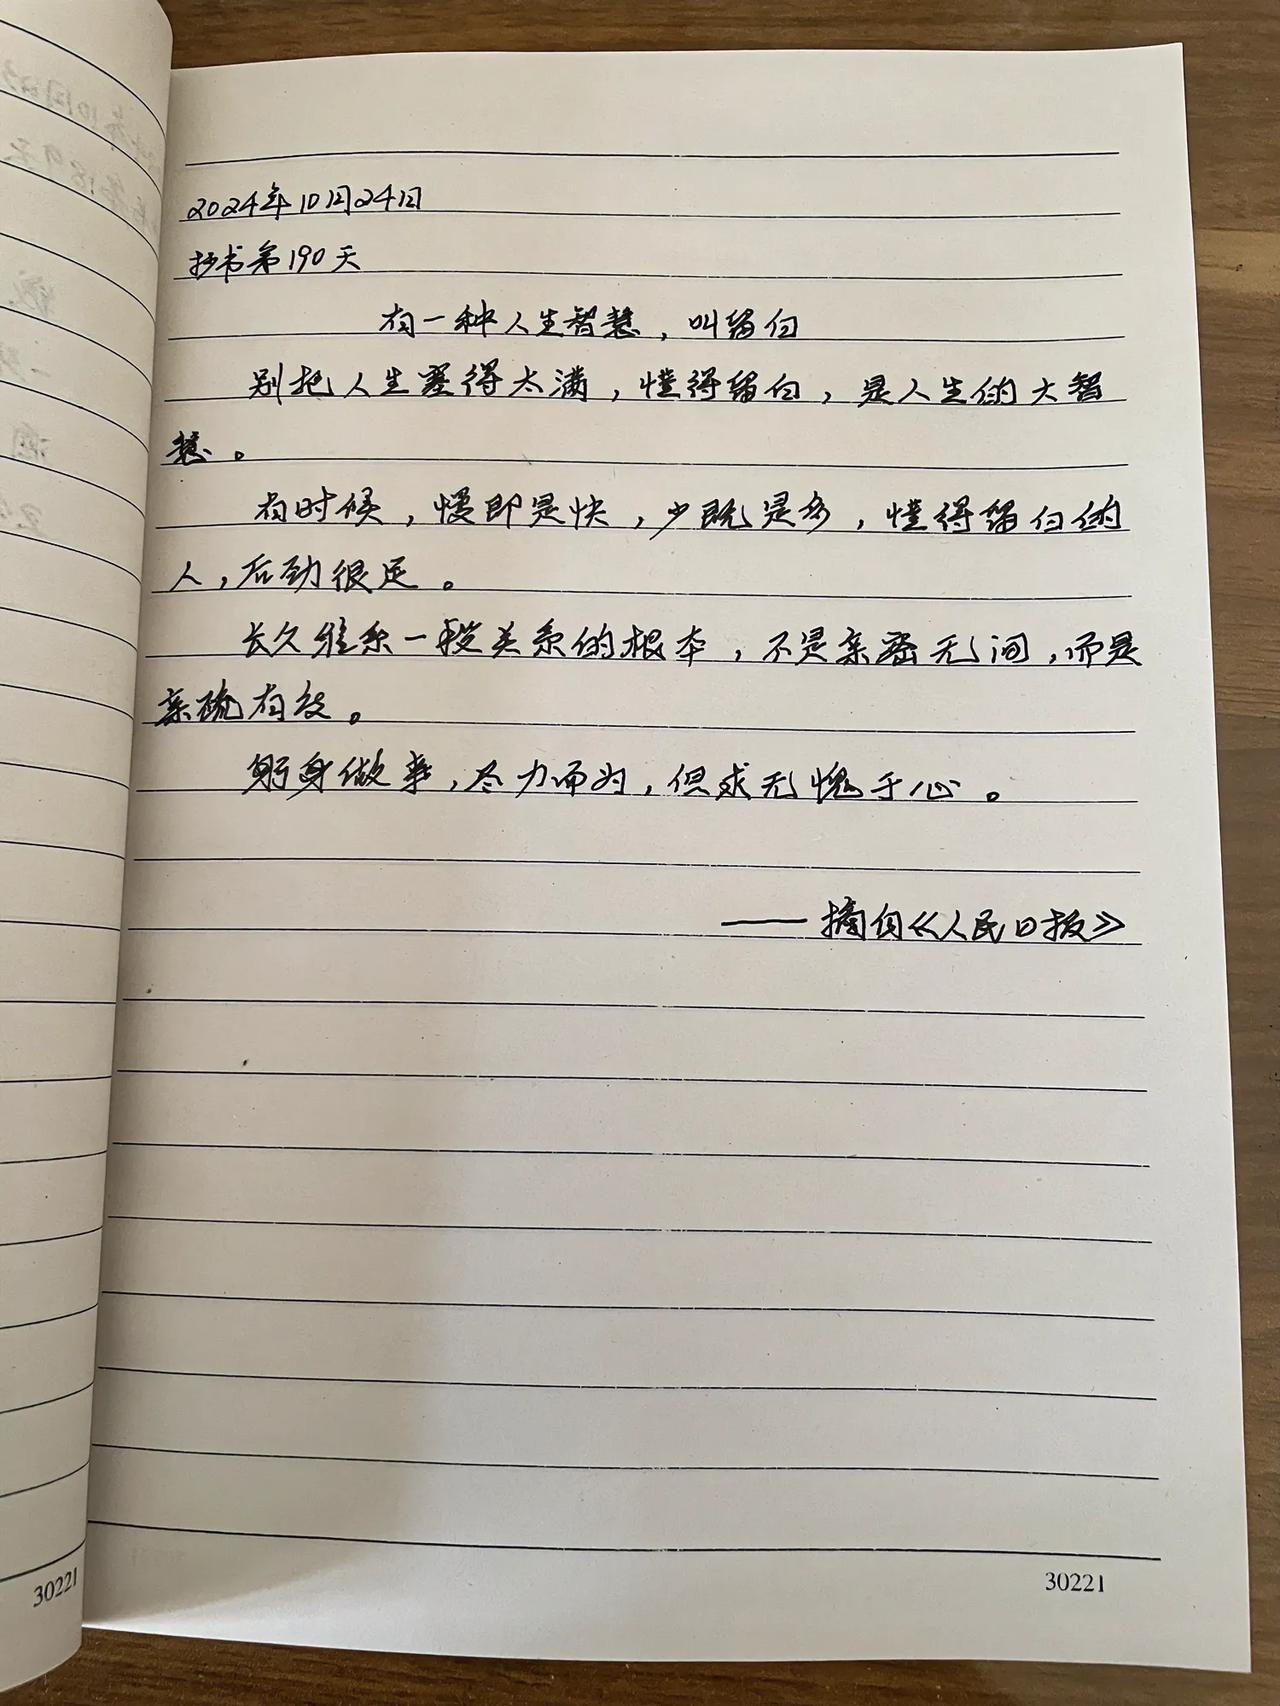 2024年10月24日
抄书第190天
有一种人生智慧，叫留白
别把人生塞得太满，懂得留白，是人生的大智
慧。
有时候，慢即是快，少既是多，懂得留白的
人，后劲很足。
长久维系一段关系的根本，不是亲密无间，而是
亲疏有纹。
躬身做事，尽力而为，但求无愧于心。
——摘自《人民日报》
30221
30221